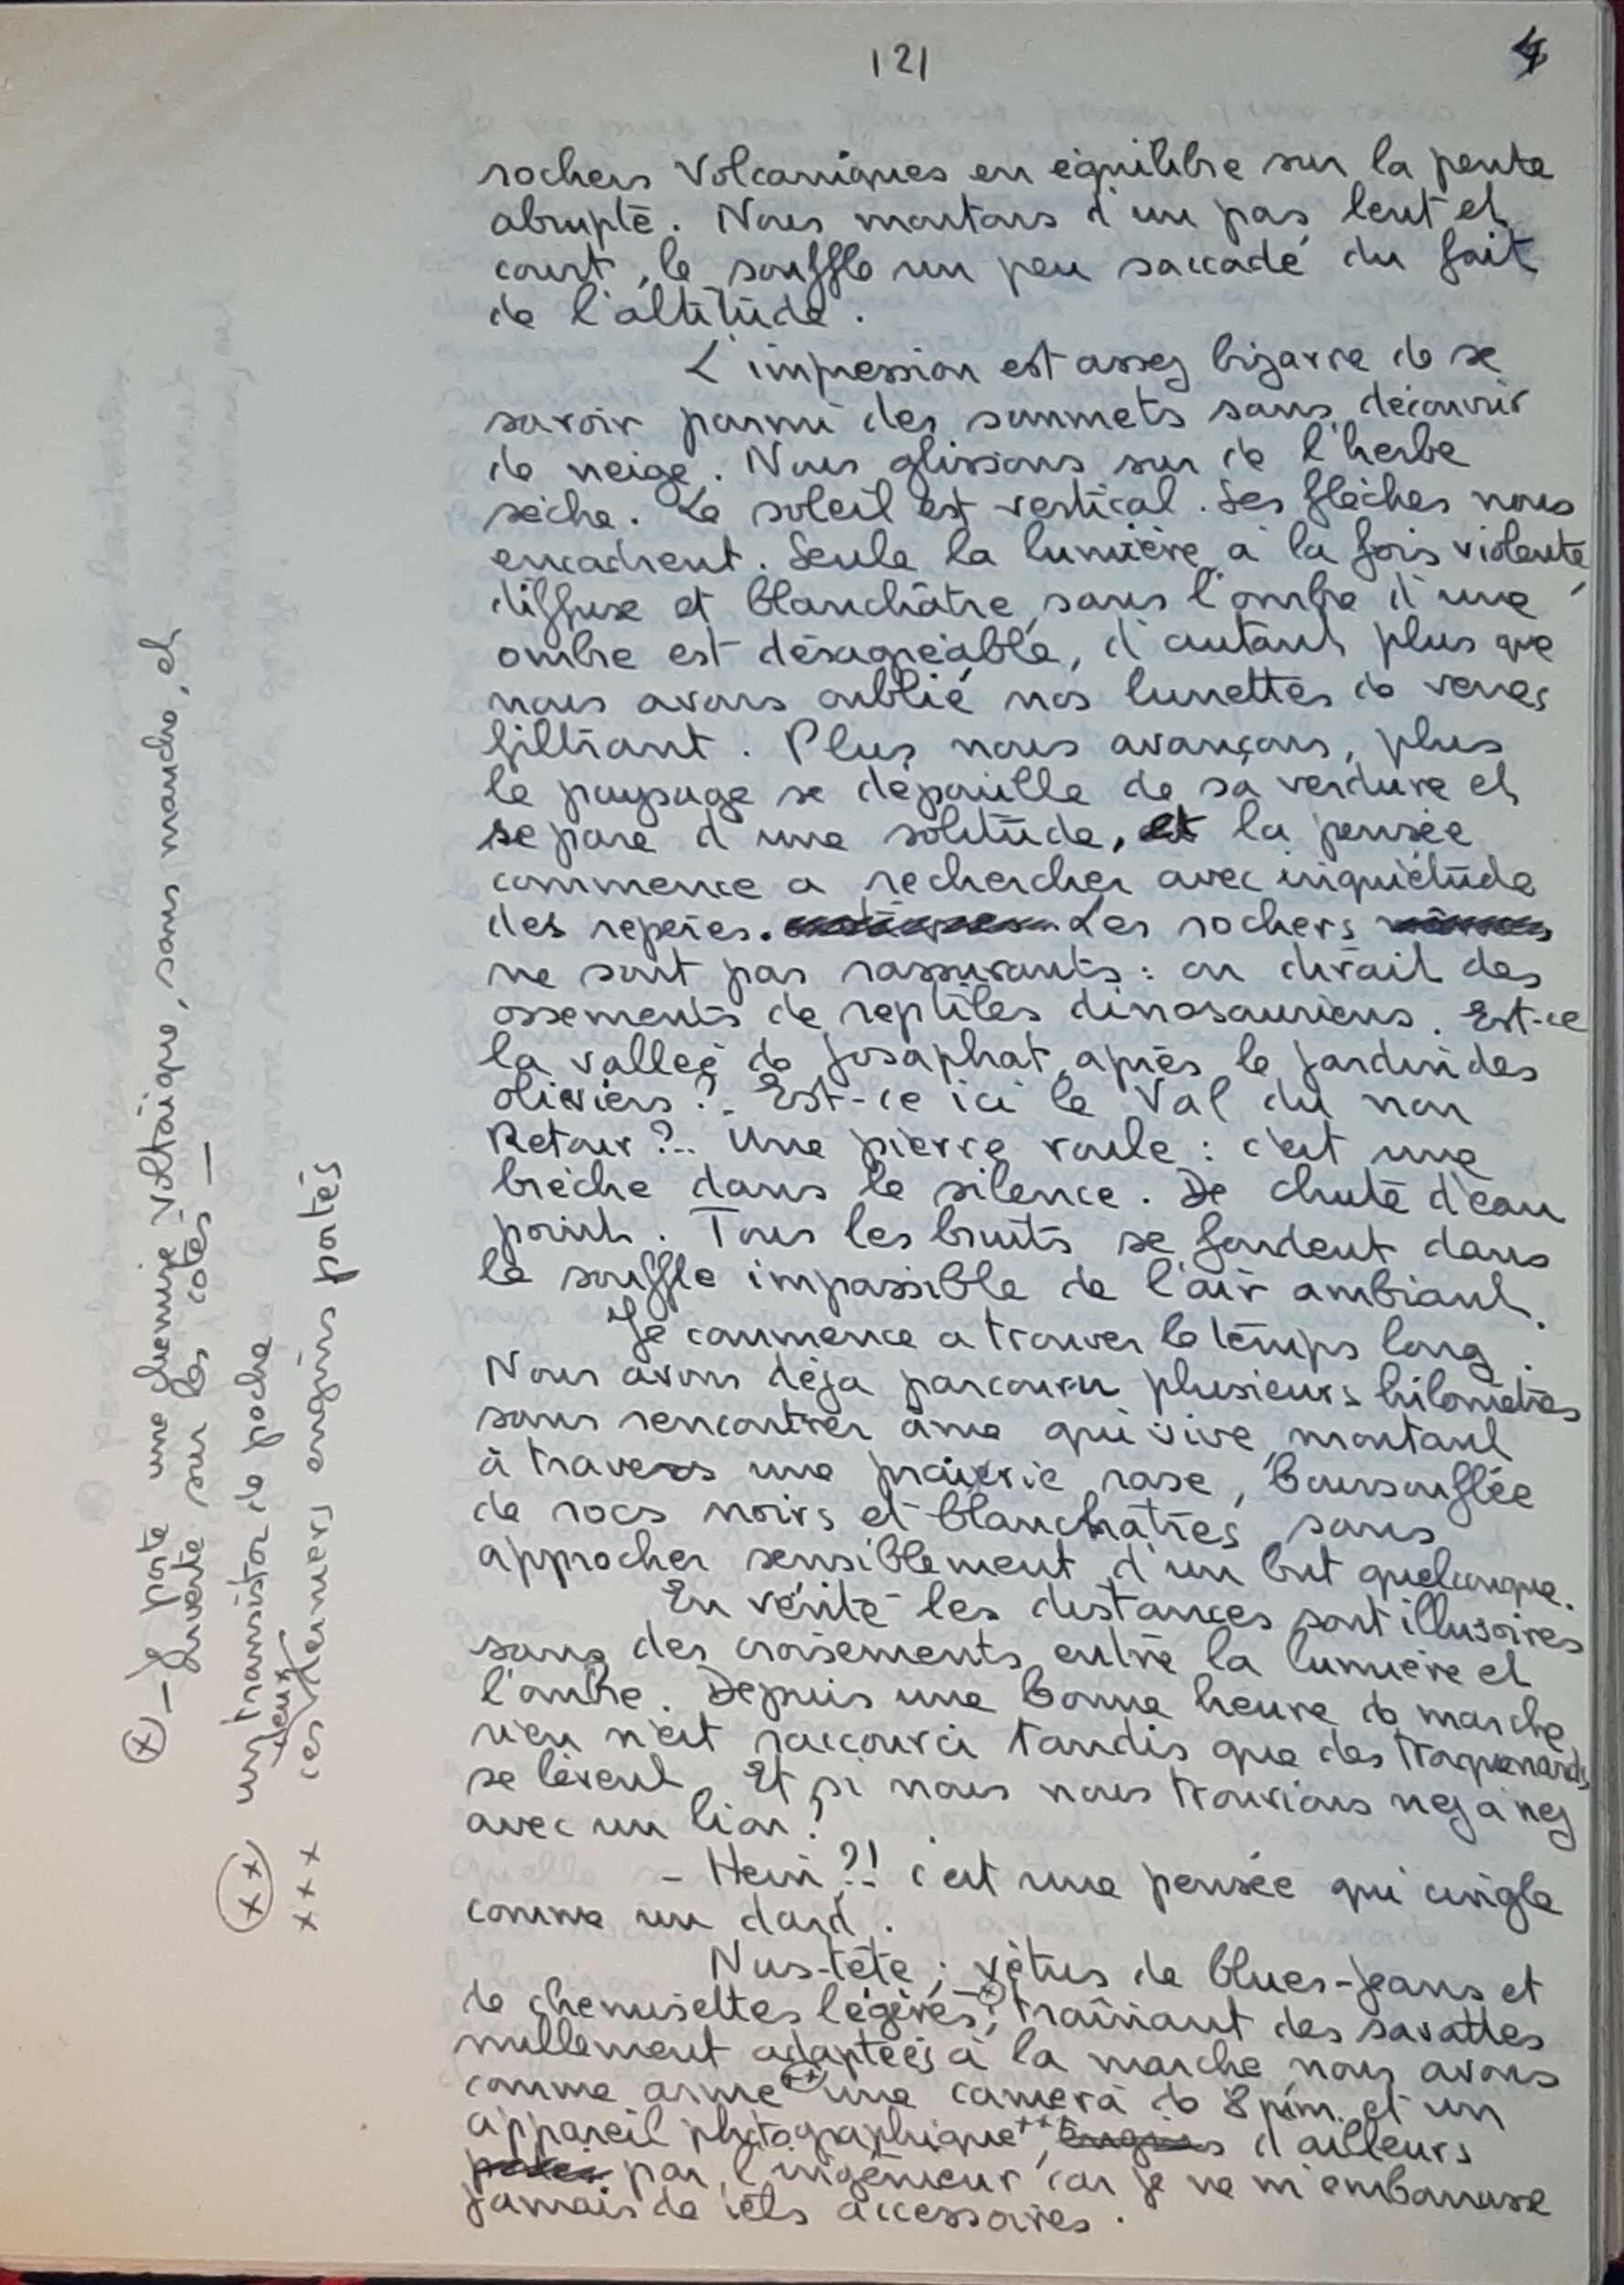 121
4
rochers volcaniques en équilibre sur la pente
abrupte. Nous montons d'un pas lent et
court, le souffle un peu saccadé du fait
de l'altitude.
L'impression est assez bizarre de se
savoir parmi des sommets sans découvrir
de neige. Nous glissons sur de l'herbe
sèche. Le soleil est vertical. Ses flèches nous
encadrent. Seule la lumière à la fois violente,
diffuse et blanchâtre, sans l'ombre d'une
ombre est désagréable, d'autant plus que
nous avons oublié nos lunettes de verres
filtrant. Plus nous avançons, plus
le paysage se dépouille de sa verdure et
se pare d'une solitude, et la pensée
commence a rechercher avec inquiétude
des repères. Les rochers
ne sont pas rassurants : on dirait des
ossements de reptiles dinosauriens. Est-ce
la vallée de Josaphat, après le jardin des
oliviers ?.. Est-ce ici le Val du non
Retour ?.. Une pierre roule : c'est une
brèche dans le silence. De chute d'eau
point. Tous les bruits se fondent dans
le souffle impassible de l'air ambiant.
Je commence a trouver le temps long.
Nous avons déjà parcouru plusieurs kilomètres
sans rencontrer âme qui vive, montant
à travers une prairie rase, boursouflée
de rocs noirs et blanchâtres, sans
approcher sensiblement d'un but quelconque.
En vérité les distances sont illusoires
sans des croisements entre la lumière et
l'ombre. Depuis une bonne heure de marche,
rien n'est raccourci tandis que des traquenards
se lèvent. Et si nous nous trouvions nez à nez
avec un lion ?
- Hein ?! c'est une pensée qui cingle
comme un dard.
Nus-tête ; vêtus de blues-jeans et
de chemisettes légères (x) ; traînant des savattes
nullement adaptées à la marche, nous avons
comme arme (xx) une caméra de 8 m/m. et un
appareil photographique xxx, engins d'ailleurs
portés par l'ingénieur car je ne m'embarrasse
jamais de tels accessoires.
(x) - Je porte une chemise voltaïque, sans manche, et
ouverte sur les cotés -
(xx) un transistor de poche
xxx ces deux derniers engins portés